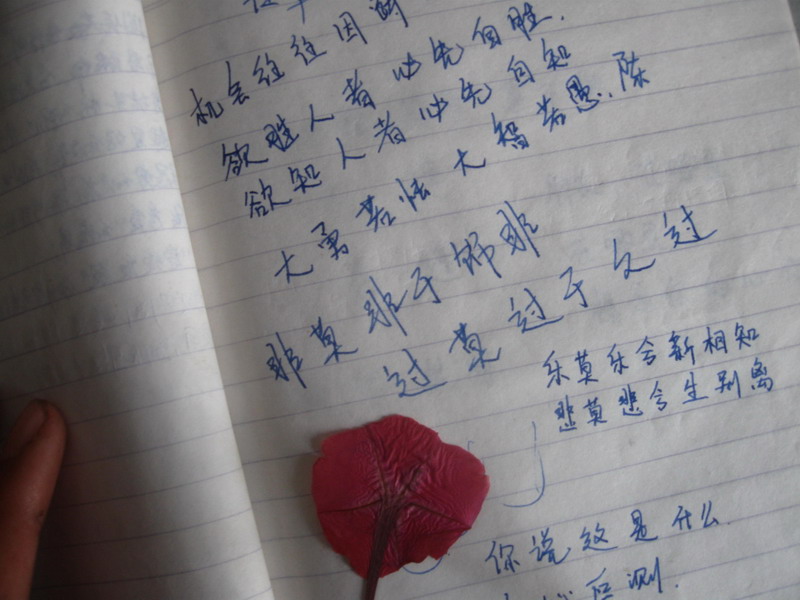 机会往往因时
欲胜人者必先自胜.
欲知人者必先自知
大勇若怯 大智若愚.. 陈
非莫非于饰非
过莫过于文过
乐莫乐兮新相知
悲莫悲兮生别离
你说这是什么
后测.